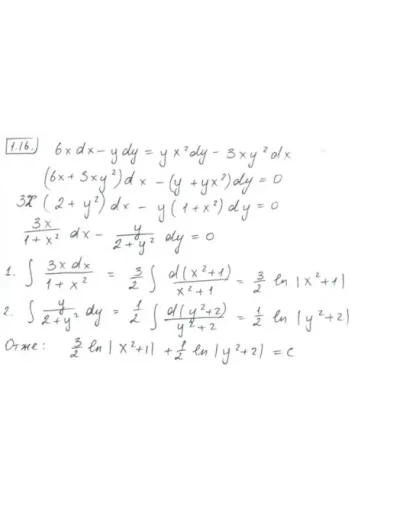 1.16. 6x dx - y dy = y x² dy - 3xy² dx
(6x + 3xy²) dx - (y + yx²) dy = 0
3x (2 + y²) dx - y (1 + x²) dy = 0
3x/(1 + x²) dx - y/(2 + y²) dy = 0
1. ∫ 3x dx/(1 + x²) = 3/2 ∫ d(x²+1)/(x²+1) = 3/2 ln |x²+1|
2. ∫ y/(2+y²) dy = 1/2 ∫ d(y²+2)/(y²+2) = 1/2 ln |y²+2|
Отже: 3/2 ln |x²+1| + 1/2 ln |y²+2| = C